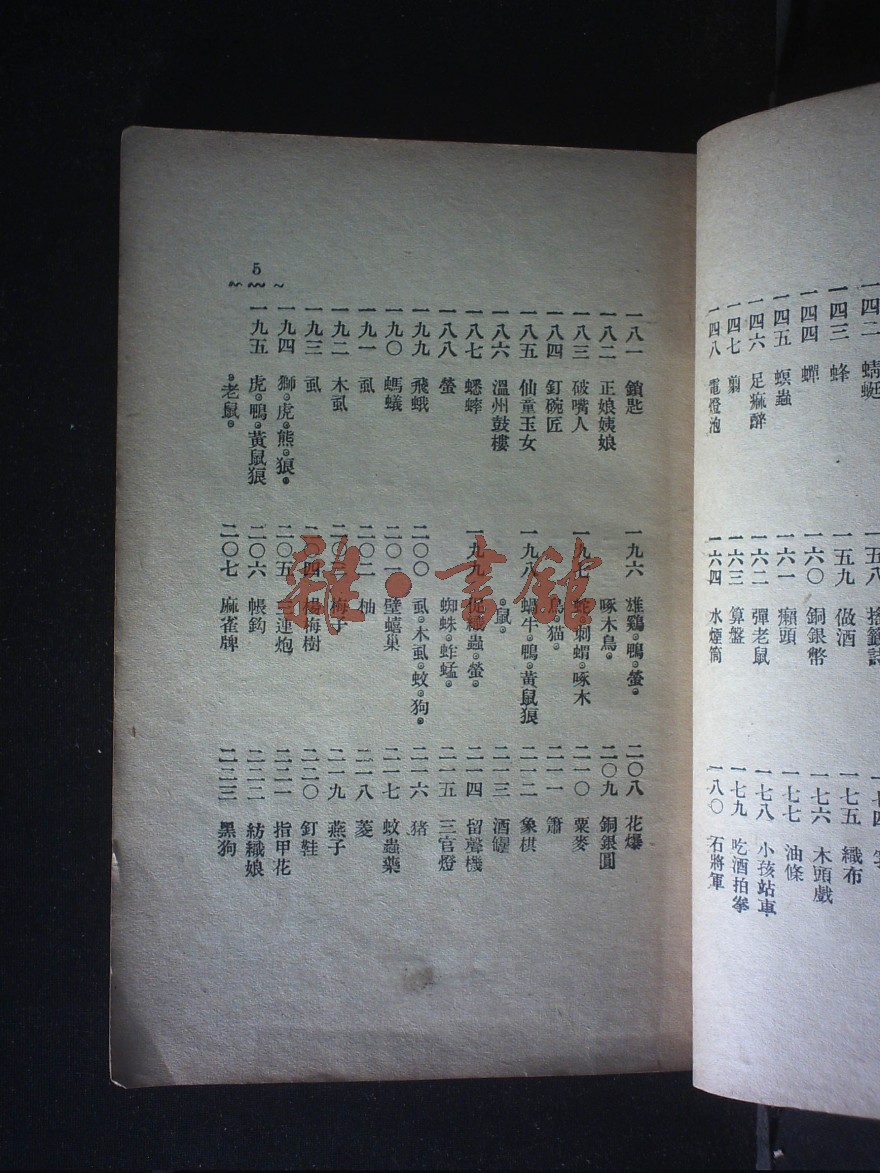 一四二 蜻蜓
一四三 蜂
一四四 蟬
一四五 螟蟲
一四六 足痲醉
一四七
一四八 電燈泡
一五八
一五九 做酒
一六〇 銅銀幣
一六一 癩頭
一六二 彈老鼠
一六三 算盤
一六四 水煙筒
一七四
一七五 織布
一七六 木頭戲
一七七 油條
一七八 小孩站車
一七九 吃酒拍拳
一八〇 石將軍
5
一八一 鎖匙
一八二 正娘姨娘
一八三 破嘴人
一八四 釘碗匠
一八五 仙童玉女
一八六 溫州鼓樓
一八七 蟋蟀
一八八 螢
一九九 飛蛾
一九〇 螞蟻
一九一 虱
一九二 木虱
一九三 虱
一九四 獅。虎。熊。狼。
一九五 虎。鴨。黃鼠狼
。老鼠。
一九六 雄鷄。鴨。螢。
啄木鳥。
一九七 蛇。刺蝟。啄木
鳥。猫。
一九八 蝸牛。鴨。黃鼠狼
。鼠。
一九九 促織蟲。螢。
蜘蛛。蚱蜢。
二〇〇 虱。木虱。蚊。狗。
二〇一 壁蟢巢
二〇二 柚
二〇三 梅子
二〇四 楊梅樹
二〇五 三連炮
二〇六 帳鈎
二〇七 麻雀牌
二〇八 花爆
二〇九 銅銀圓
二一〇 粟麥
二一一 簫
二一二 象棋
二一三 酒罎
二一四 留聲機
二一五 三官燈
二一六 猪
二一七 蚊蟲藥
二一八 菱
二一九 燕子
二二〇 釘鞋
二二一 指甲花
二二二 紡織娘
二二三 黑狗
雜·書館